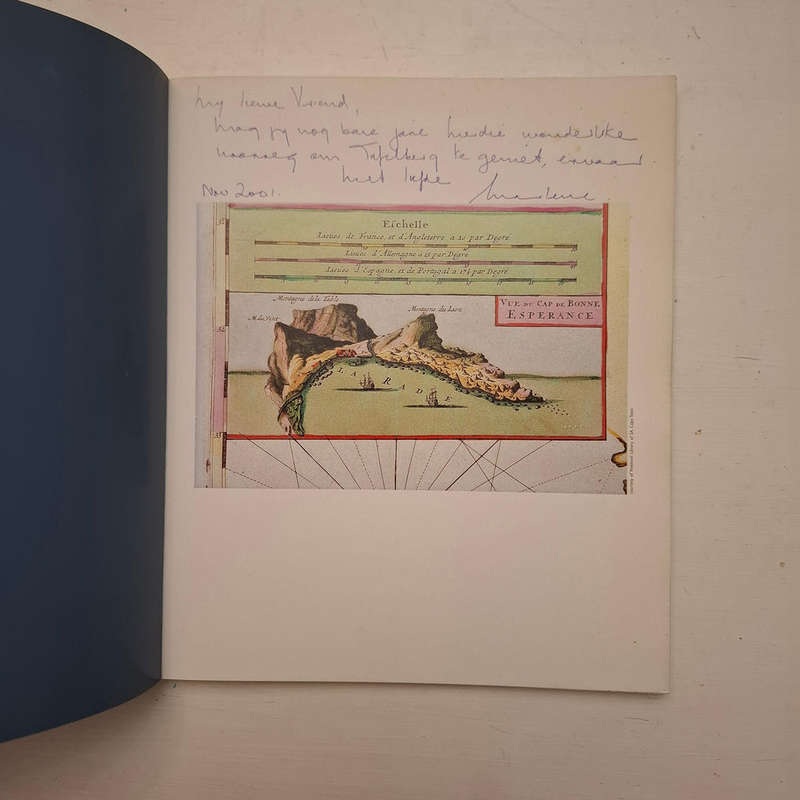 My liewe Vriend,
Mag jy nog baie jare hierdie wonderlike
om Tafelberg te geniet, ervaar
Met liefde
Nov 2001. Marlene
Eſchelle
Lieues de France, et d'Angleterre a 20 par Degré
Lieues d'Allemagne a 15 par Degré
Lieues d'Espagne, et de Portugal a 17½ par Degré
Montagne de la Table
Montagne du Lion
M. du Vent
VUE DU CAP DE BONNE
ESPERANCE
LA RADE
courtesy of National Library of SA, Cape Town